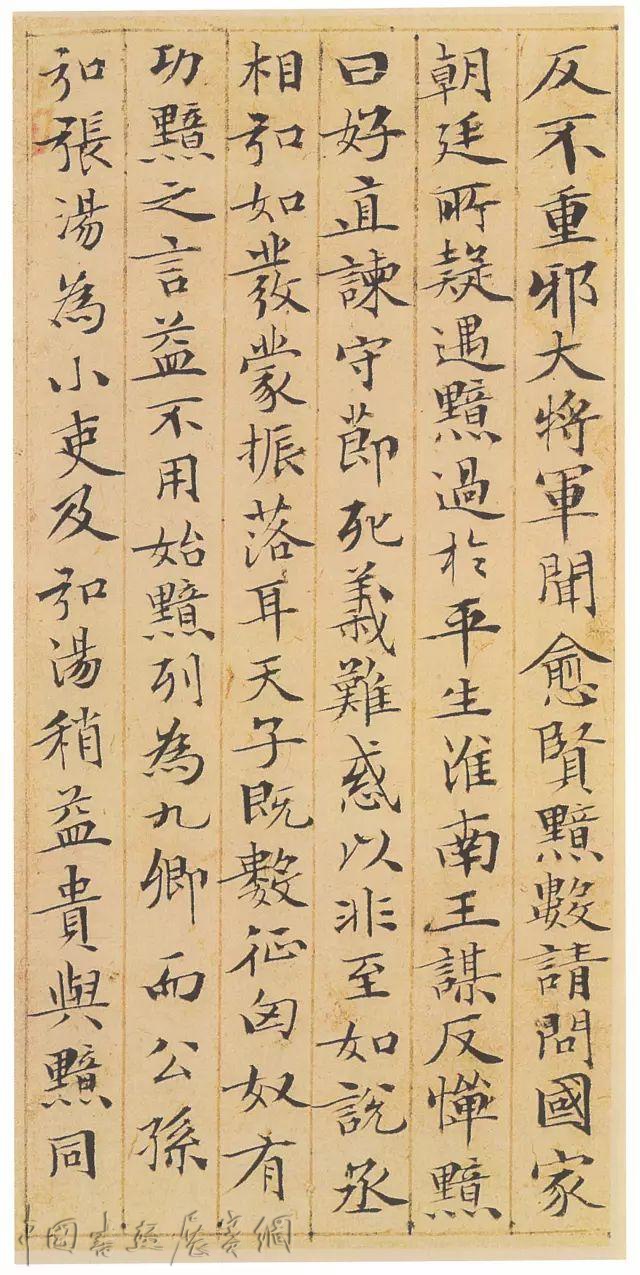 反不重邪大將軍聞愈賢黯數請問國家
朝廷所疑遇黯過於平生淮南王謀反憚黯
曰好直諫守節死義難惑以非至如說丞
相弘如發蒙振落耳天子既數征匈奴有
功黯之言益不用始黯列為九卿而公孫
弘張湯為小吏及弘湯稍益貴與黯同
中國書法展賽網